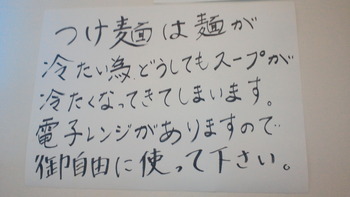 つけ麺は麺が
冷たい為、どうしてもスープが
冷たくなってきてしまいます。
電子レンジがありますので
御自由に使って下さい。